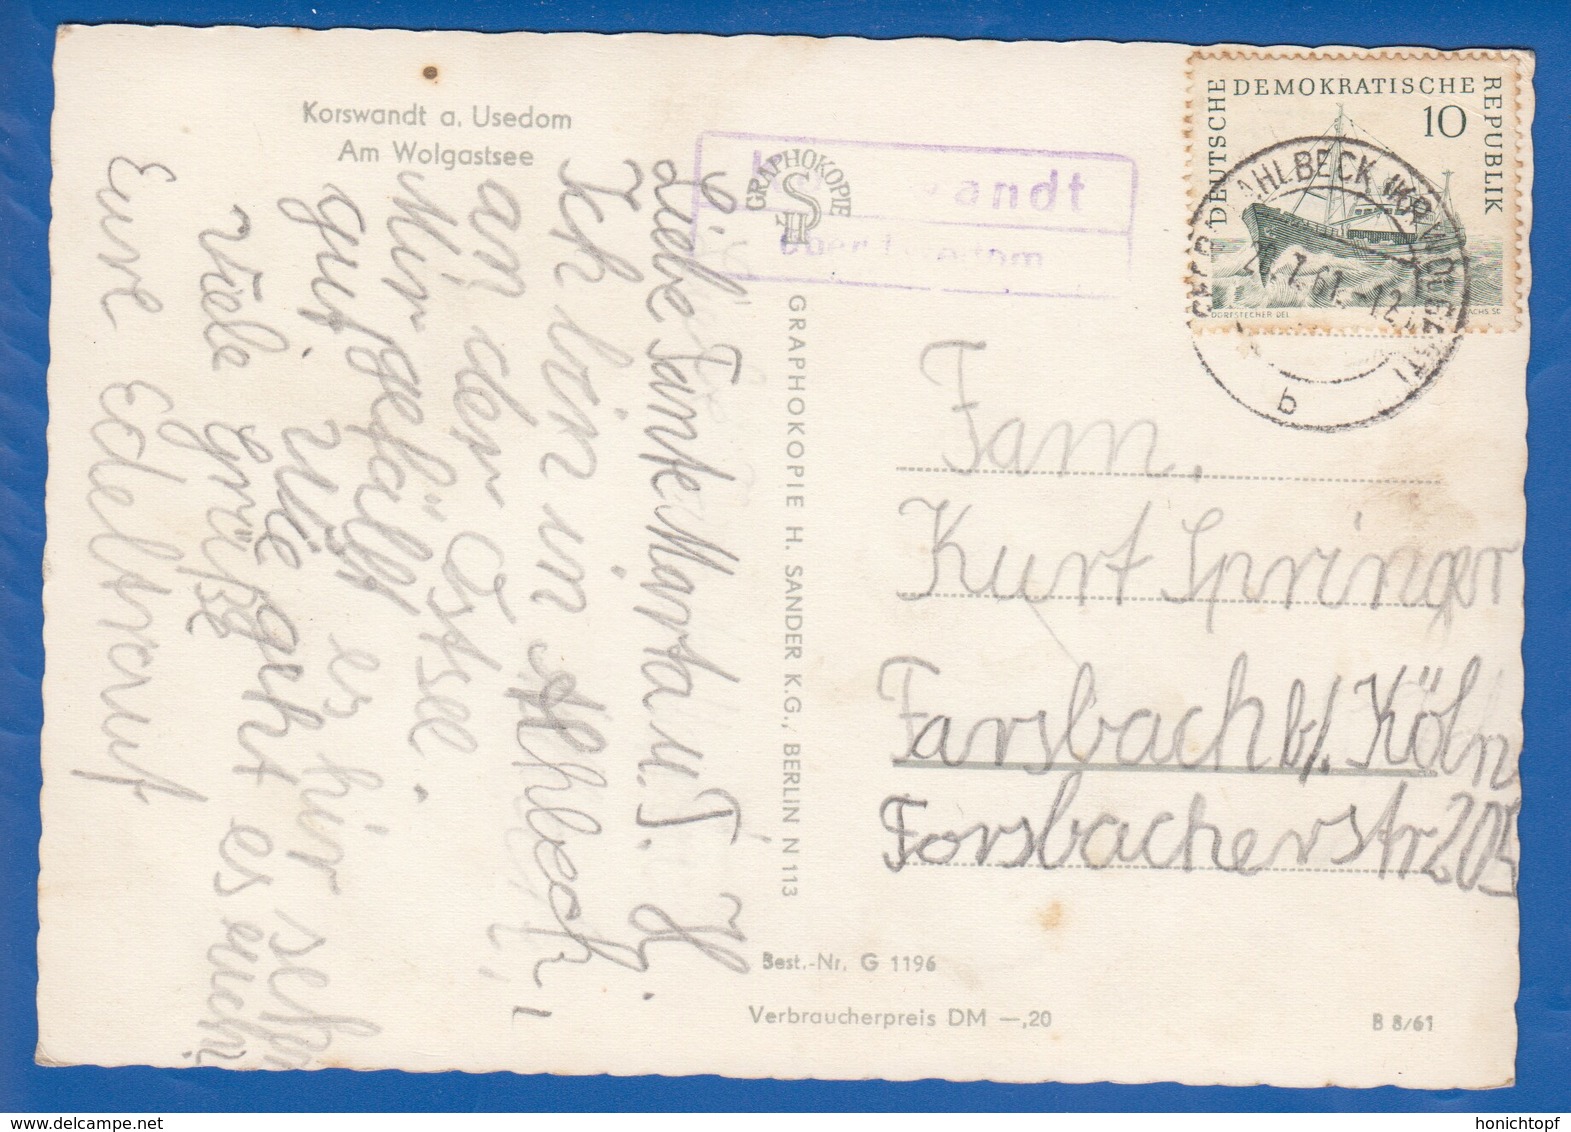 Korswandt a. Usedom
Am Wolgastsee
Liebe Tante Marta u. J. H.
Ich bin in Ahlbeck,
an der Ostsee.
Mir gefällt es hir sehr
gut. Wie geht es euch
Viele Grüße
Eure Edeltraut
GRAPHOKOPIE
GRAPHOKOPIE H. SANDER K.G., BERLIN N 113
über Usedom
DEUTSCHE DEMOKRATISCHE REPUBLIK
10
DORFSTECHER DEL
SEEBAD AHLBECK (KR WOLGAST)
7.61.-12
b
Fam.
Kurt Springer
Farsbach b/. Köln
Forsbacherstr 205
Best.-Nr. G 1196
Verbraucherpreis DM —,20
B 8/61
www.delcampe.net
honichtopf